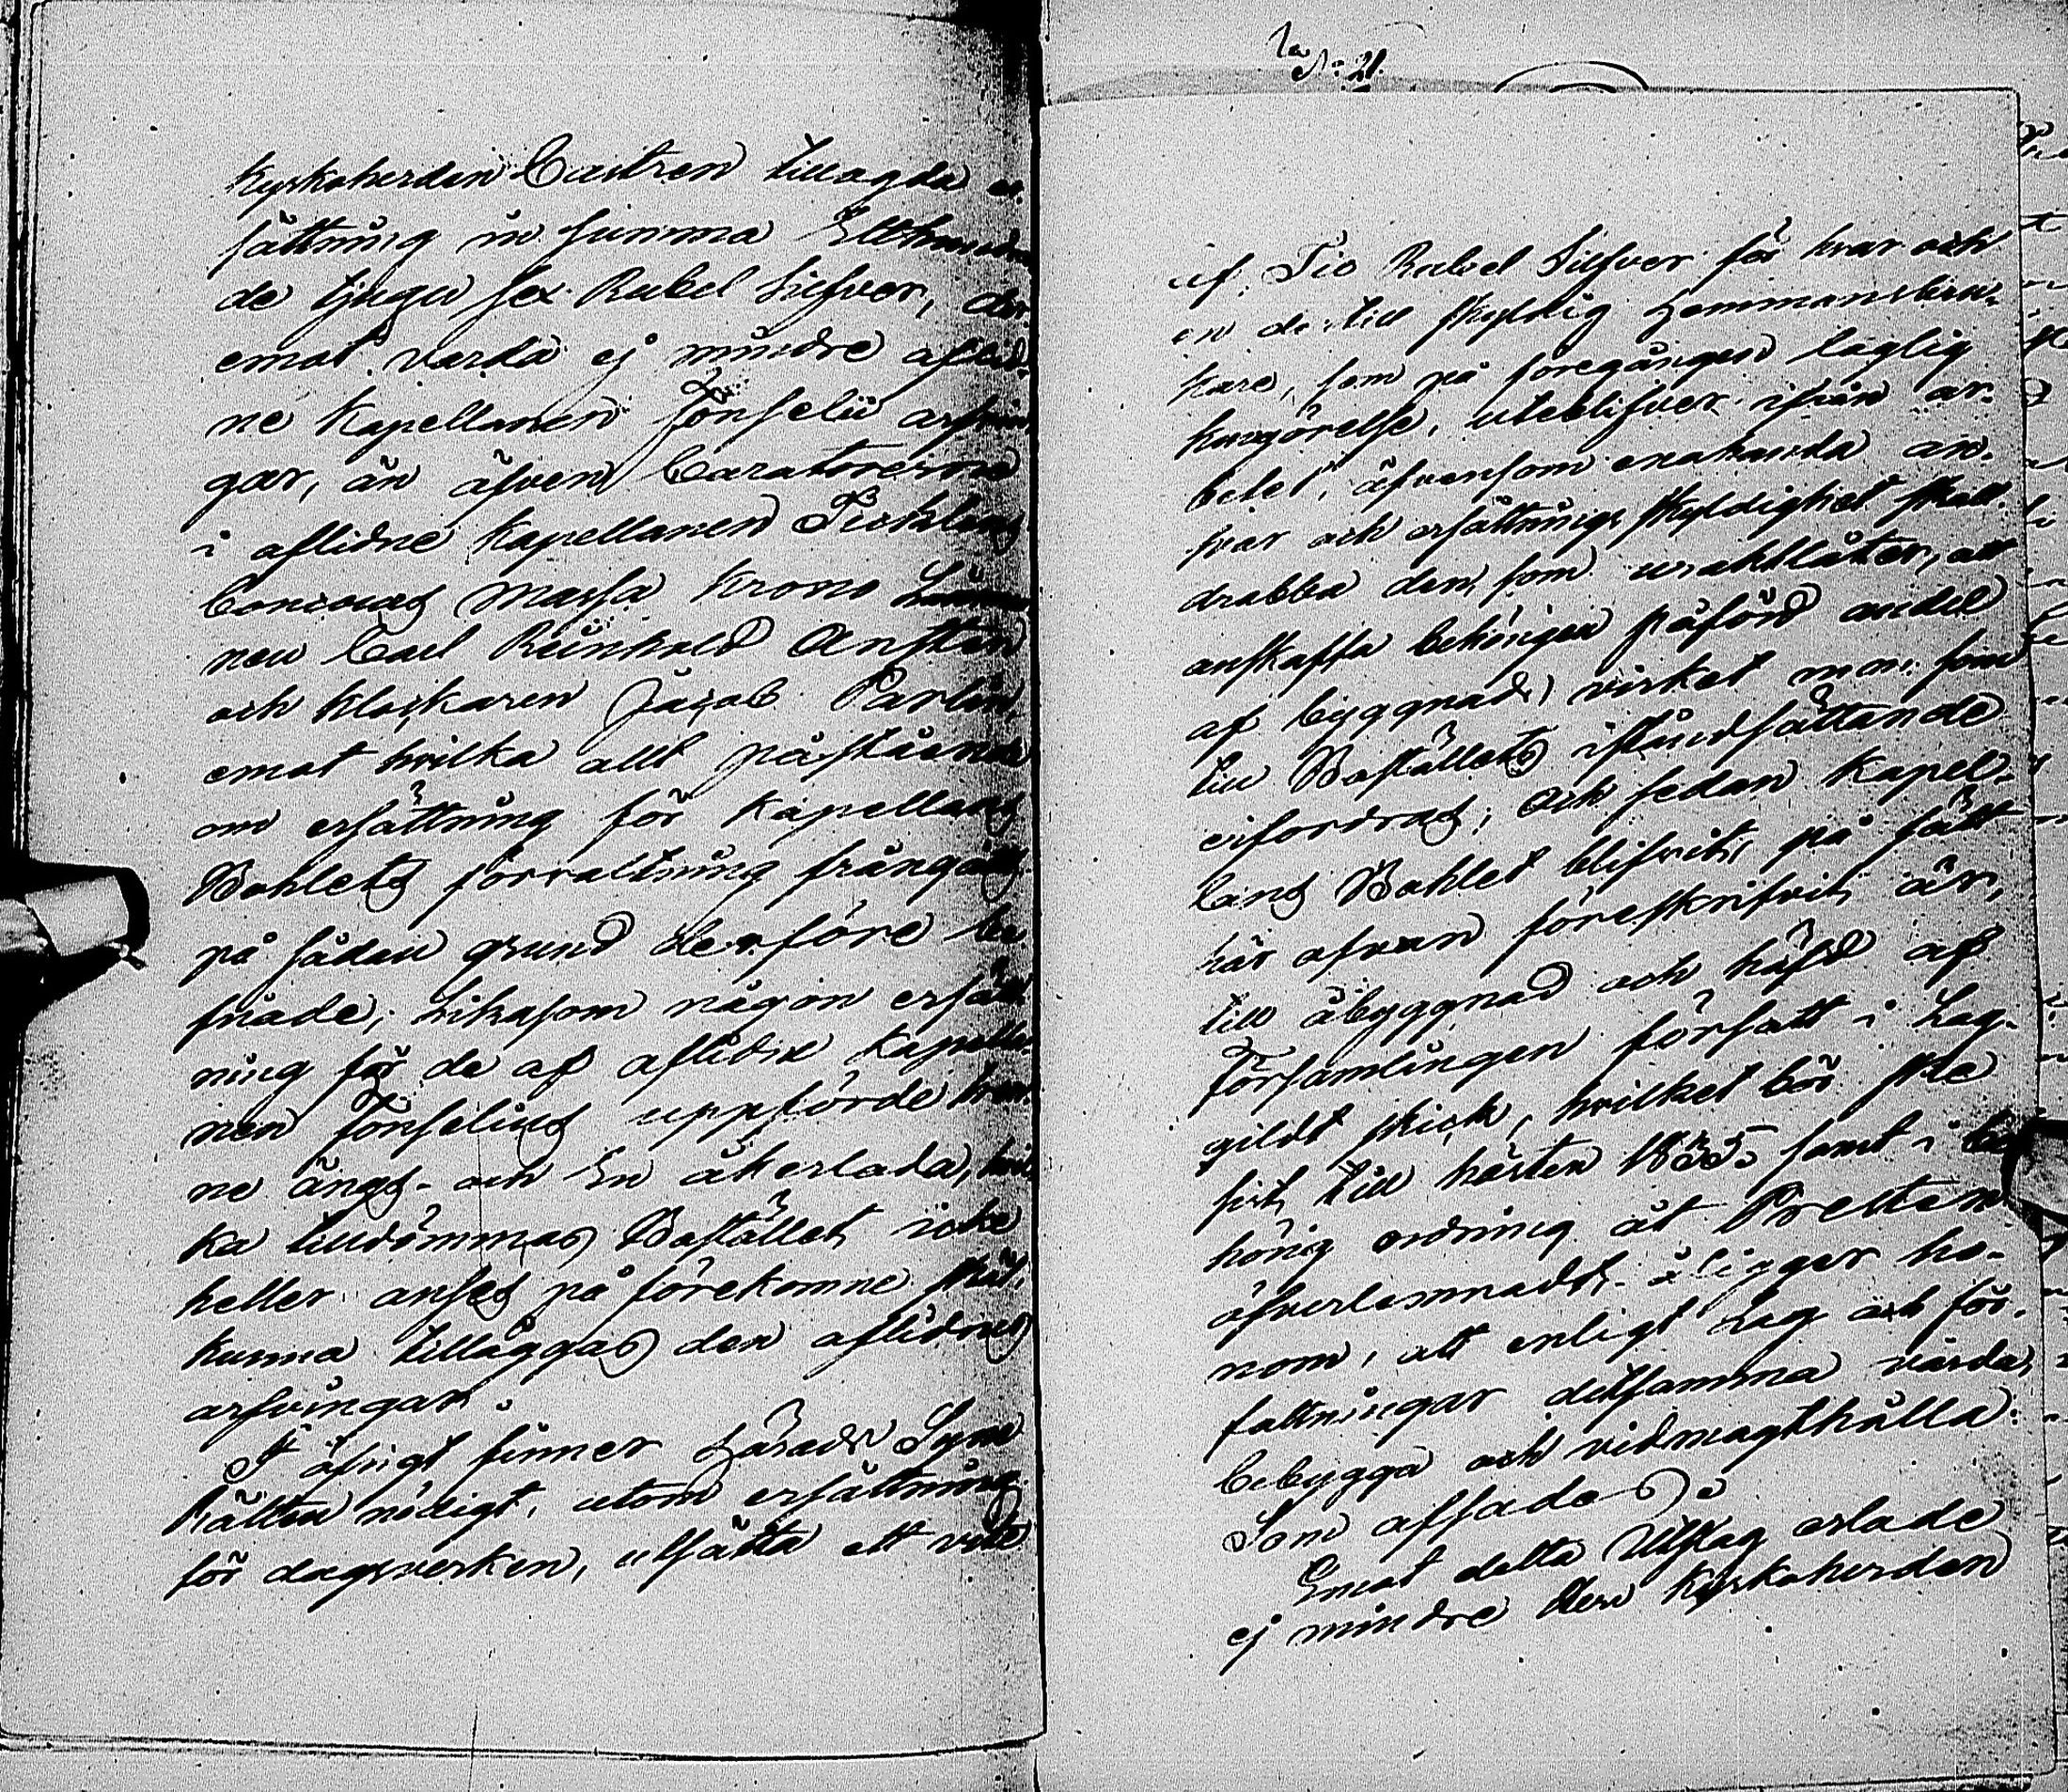 Kyrkoherden Castrén tillagda er-
sättning in summa Etthundra
de tjugu sex Rubel Silfver, der-
emot varda ej mindre aflid-
ne Kapellanen Forselii arfvin
gar, än äfven Curatorerne
i aflidne Kapellanen Pichlers
Concurs Massa Krono Läns-
Carl Reinhold
och Klockaren Jacob Parlin
emot hvilka allt påstående
om ersättning för Kapellans
Bohlets förvaltning frångås
på sådan grund derföre be-
friade, Likasom någon ersätt
ning för de af aflidne Kapella
nen Forselius uppförde
ne ängs- och En åkerlada, hvil
ka tilldömmas Bostället, icke
heller anses på förekomne skäl
kunna tilläggas den aflidnes
arfvingar.
I öfrigt finner Härads Syne
Rätten nödigt, utom ersättning
för dagsverken, utsätta ett vite
N: 21.
af Tio Rubel Silfver för hvar och
en dertill skyldig Hemmansbru-
kare, som på föregången laglig
kungörelse, uteblifver ifrån ar-
betet, äfvensom enahanda an-
svar och ersättnings skyldighet skall
drabba den, som urachtlåter, att
anskaffa behörigen påförd andel
af byggnads virket m. m. som
till Boställets iståndsättande
erfordras; Och sedan Kapel-
lans Bohlet blifvit, på sätt
här ofvan föreskrifvit är,
till åbyggnad och häfd af
Församlingen försatt i Lag-
gildt skick, hvilket bör ske
sist till hösten 1835 samt i be-
hörig ordning åt Presten
öfverlemnadt, åligger ho-
nom, att enligt Lag och för-
fattningar detsamma vårda,
bebygga och vidmagthålla.
Som afsades.
Emot detta Utslag erlade
ej mindre Herr Kyrkoherden